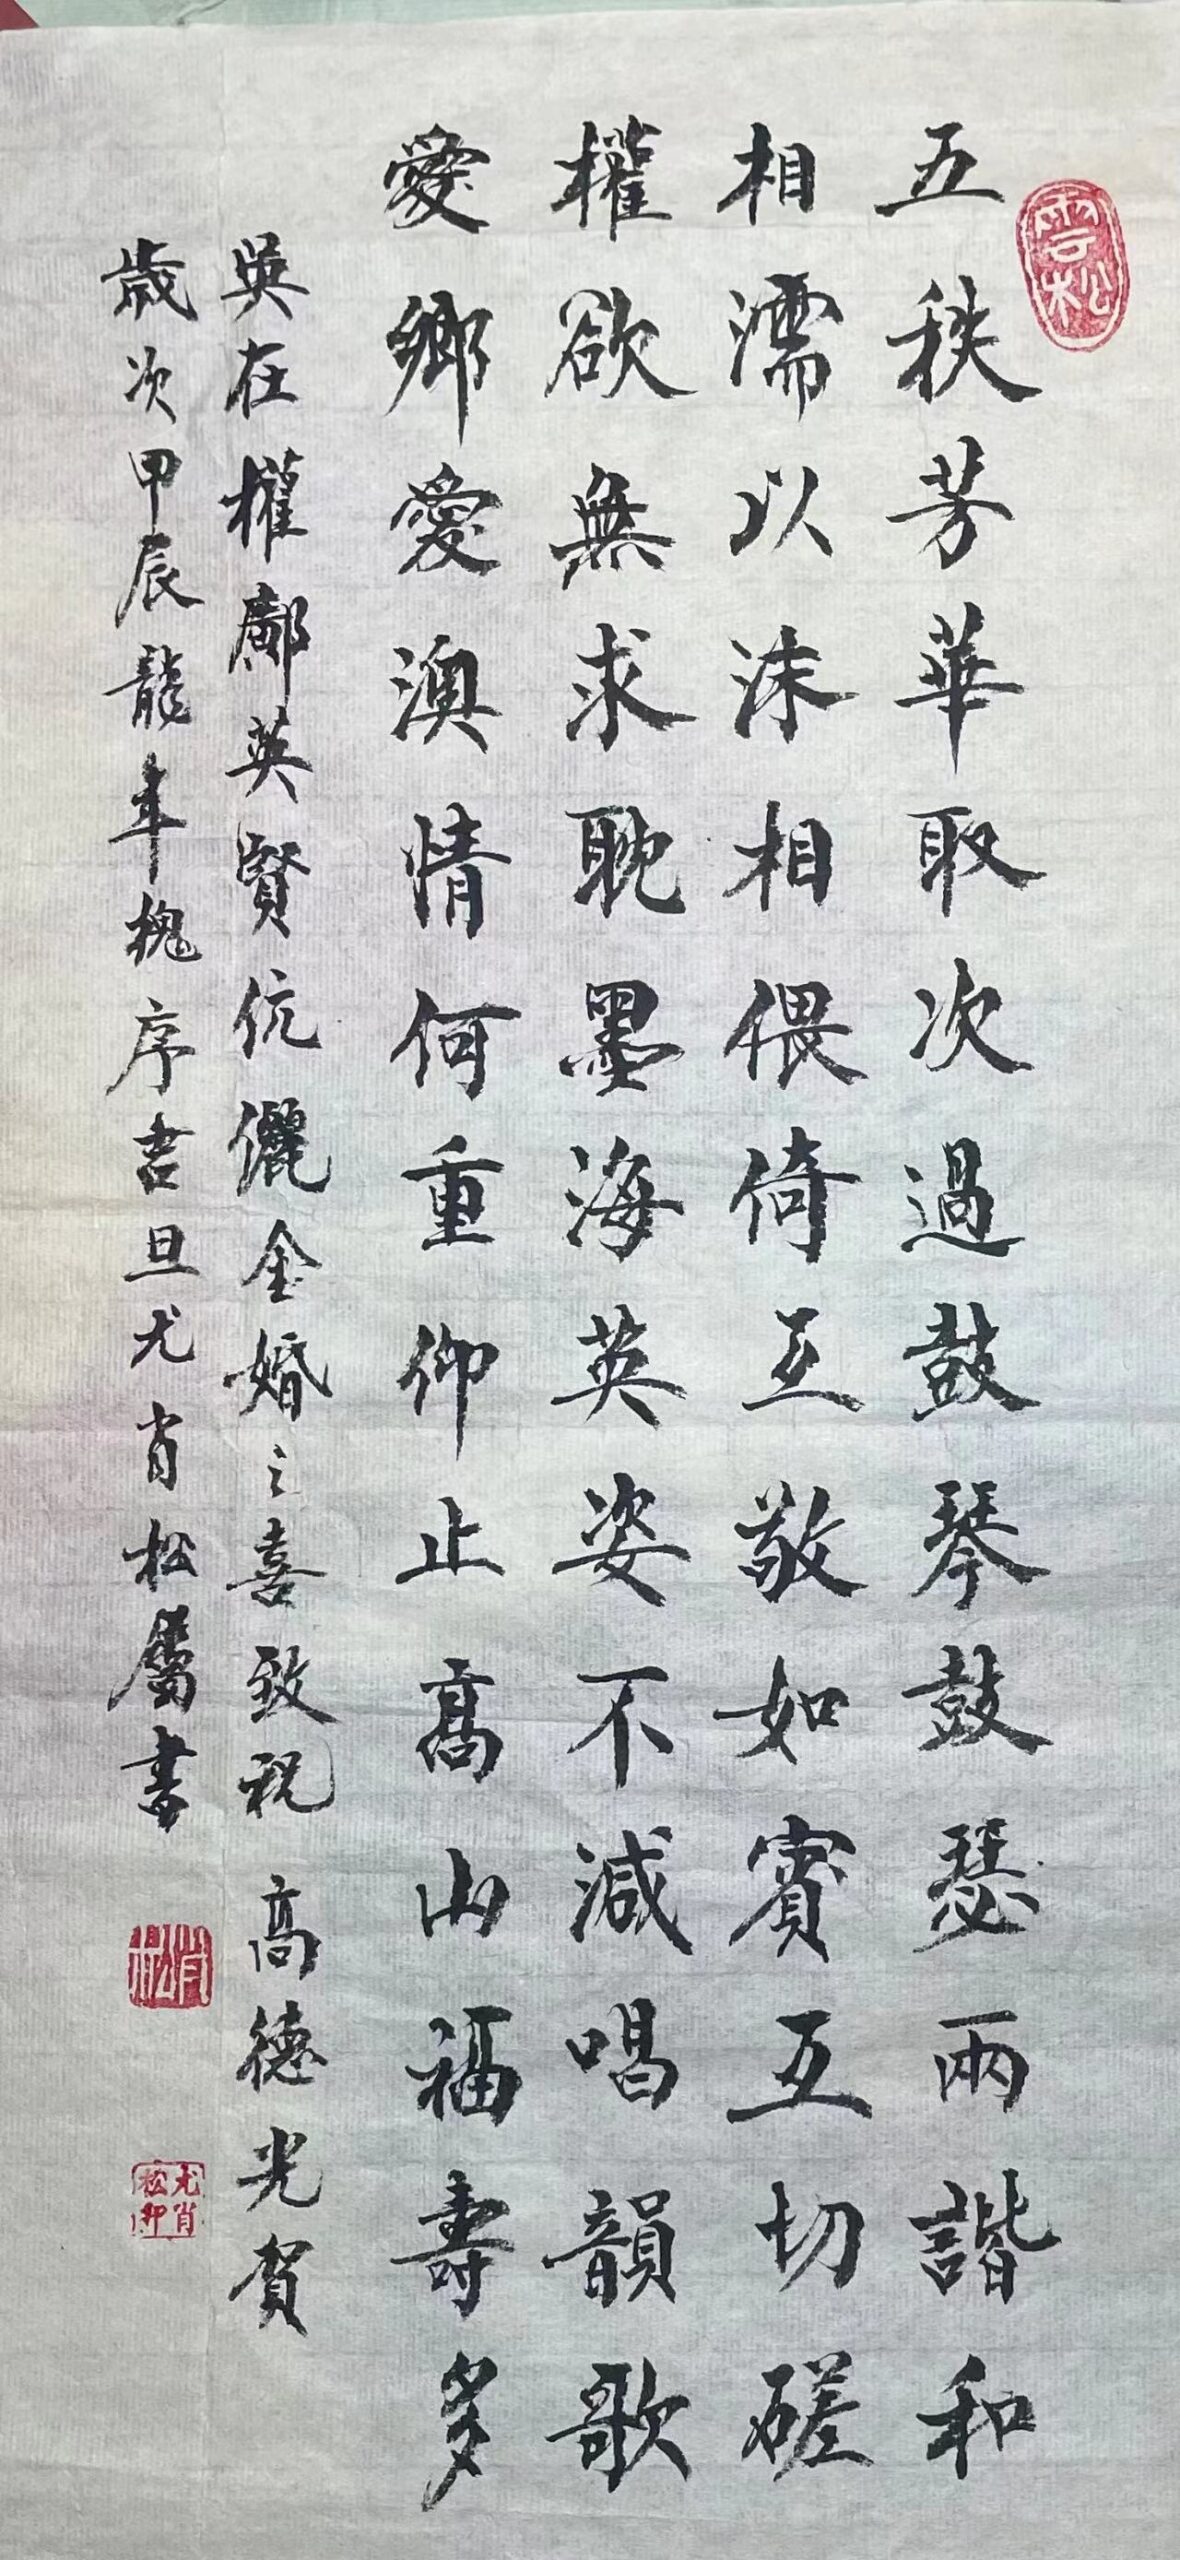 雲松
五秩芳華取次過鼓琴鼓瑟兩諧和
相濡以沫相偎倚互敬如賓互切磋
權欲無求耽墨海英姿不減唱韻歌
愛鄉愛澳情何重仰止高山福壽多
吳在權鄺英賢伉儷金婚之喜致祝 高德光賀
歲次甲辰龍年槐序吉旦尤肖松屬書
肖松
尤肖松印